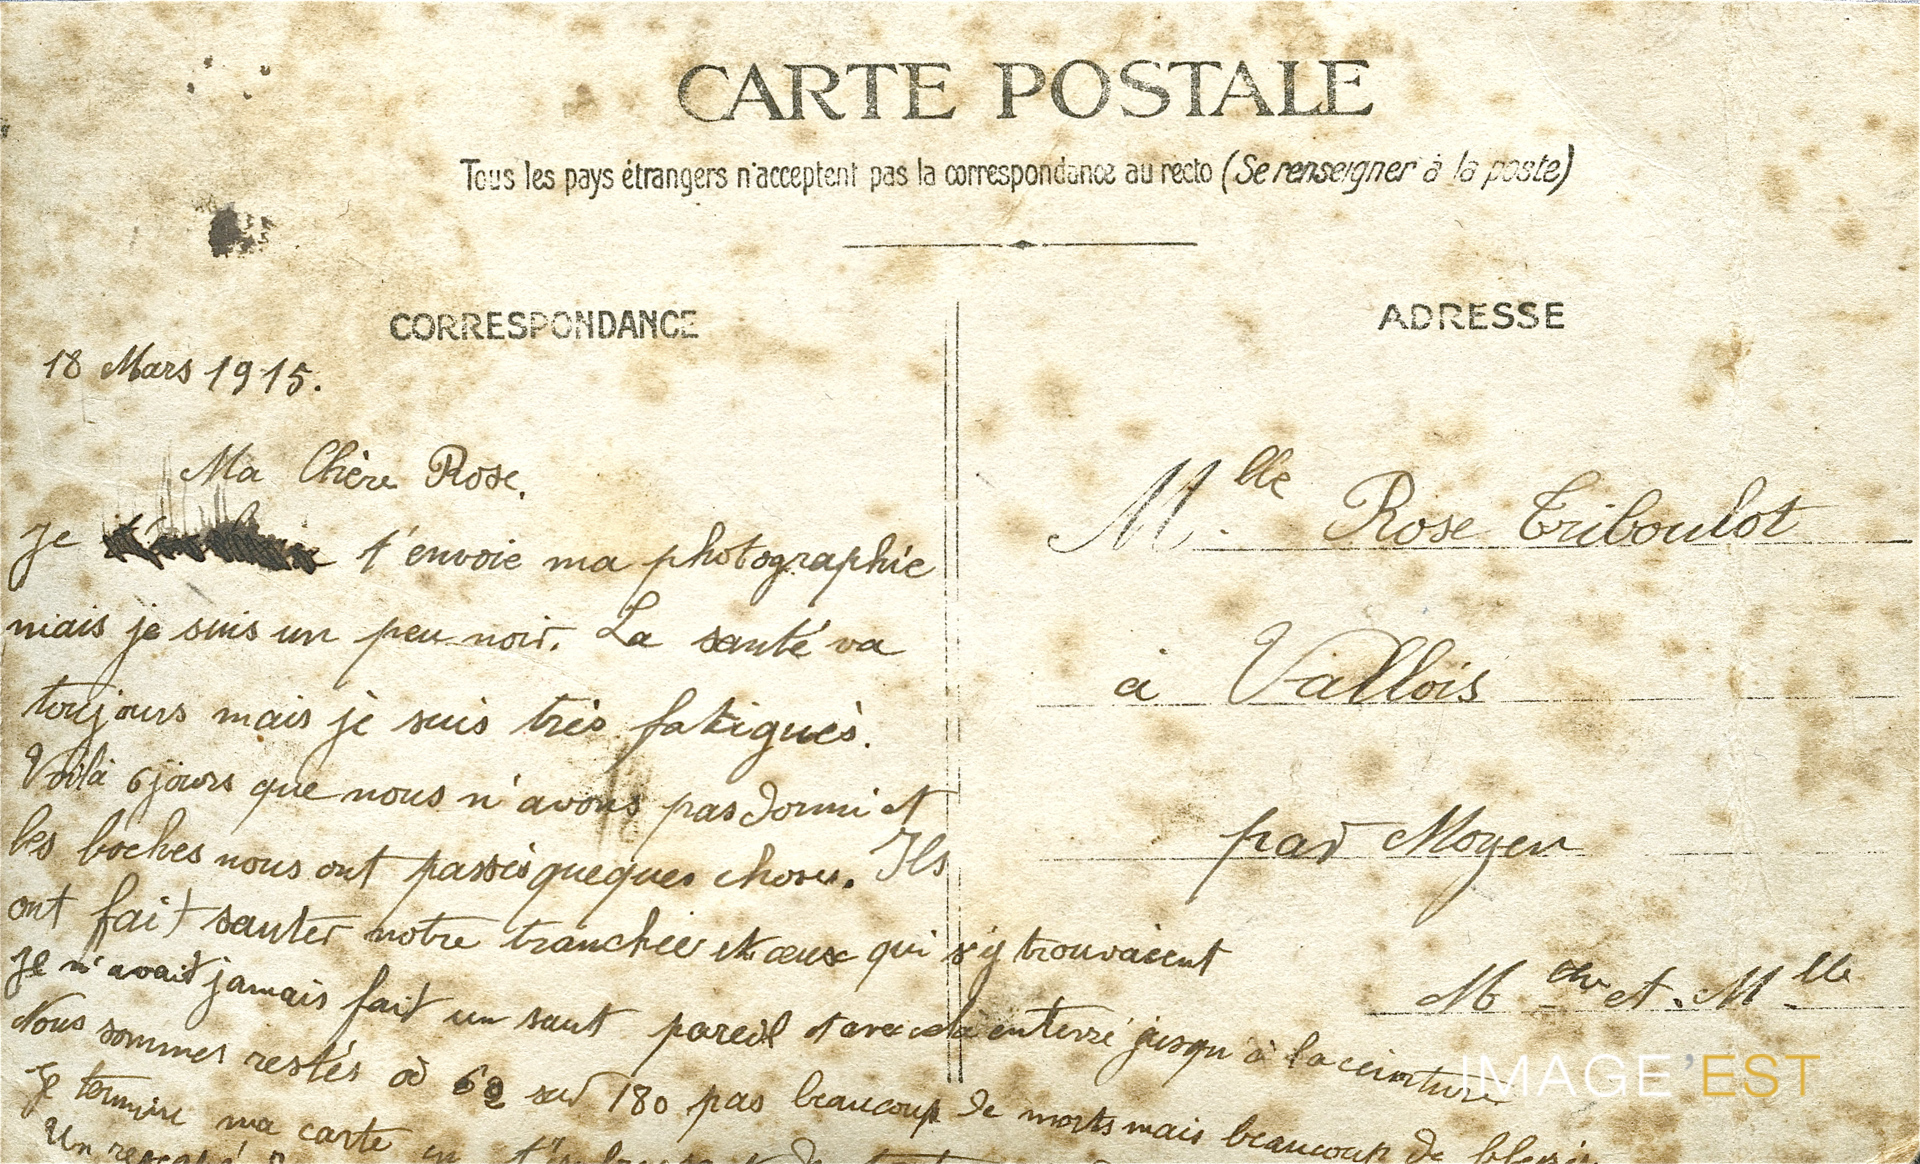 CARTE POSTALE
Tous les pays étrangers n'acceptent pas la correspondance au recto (Se renseigner à la poste)
CORRESPONDANCE
18 Mars 1915.
Ma Chère Rose.
Je t'envoie ma photographie
mais je suis un peu noir. La santé va
toujours mais je suis très fatigués.
Voilà 6 jours que nous n'avons pas dormi et
les boches nous ont passés queques choses. Ils
ont fait sauter notre tranchée et ceux qui s'y trouvaient
Je n'avait jamais fait un saut pareil et avec cela enterré jusqu à la ceinture
Nous sommes restés à 62 sur 180 pas beaucoup de morts mais beaucoup de
Je termine ma carte en
Un
ADRESSE
Mlle Rose Triboulot
à Vallois
par Moyen
M et Mlle
IMAGE'EST